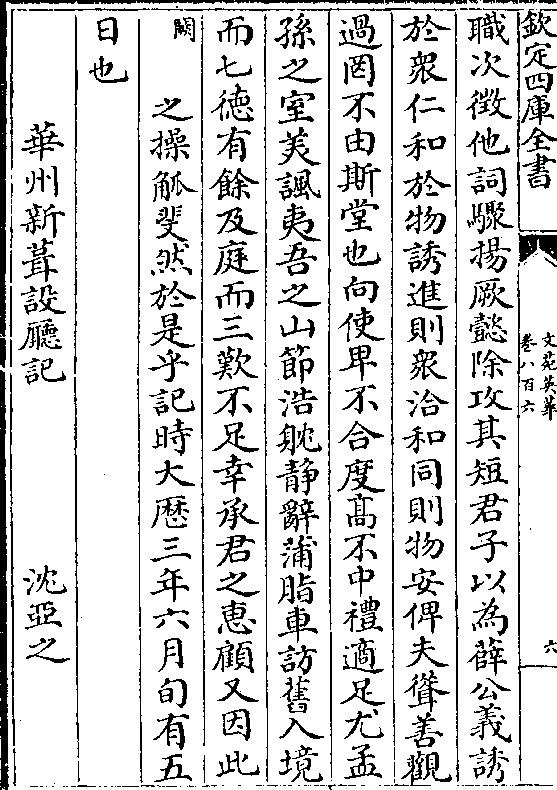 欽定四庫全書
文苑英華
卷八百六
六
職次徵他詞驟揚厥懿除攻其短君子以為薛公義誘
於衆仁和於物誘進則衆洽和同則物安俾夫聳善觀
過罔不由斯堂也向使卑不合度髙不中禮適足尤孟
孫之室美諷夷吾之山節浩躭静辭蒲脂車訪舊入境
而七德有餘及庭而三歎不足幸承君之惠顧又因此
闕　之操觚斐然於是乎記時大厯三年六月旬有五
日也
華州新葺設廳記　沈亞之